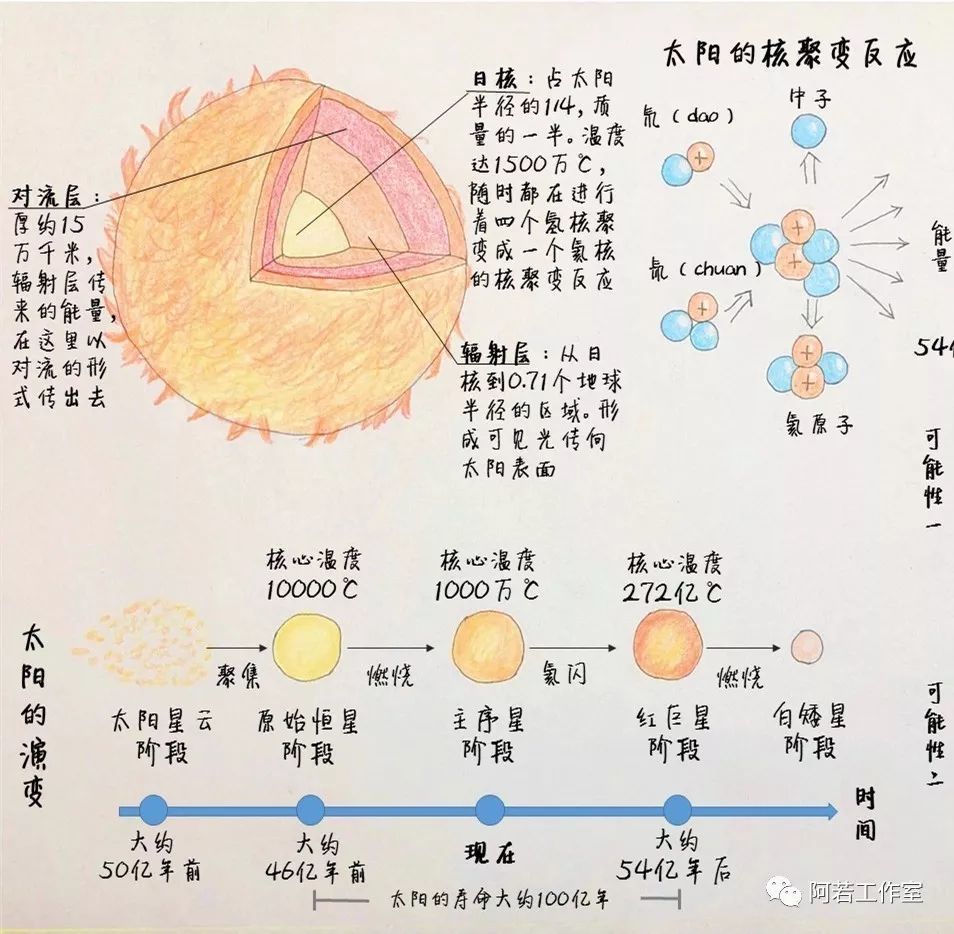 太阳的核聚变反应
日核：占太阳
半径的1/4，质
量的一半。温度
达1500万℃，
随时都在进行
着四个氢核聚
变成一个氦核
的核聚变反应
对流层：
厚约15
万千米，
辐射层传
来的能量，
在这里以
对流的形
式传出去
辐射层：从日
核到0.71个地球
半径的区域。形
成可见光传向
太阳表面
氘（dao）
中子
氚（chuan）
能量
氦原子
54亿
可能性一
可能性二
太阳的演变
核心温度
10000℃
核心温度
1000万℃
核心温度
272亿℃
聚集
燃烧
氦闪
燃烧
太阳星云
阶段
原始恒星
阶段
主序星
阶段
红巨星
阶段
白矮星
阶段
时间
大约
50亿年前
大约
46亿年前
现在
大约
54亿年后
太阳的寿命大约100亿年
阿若工作室